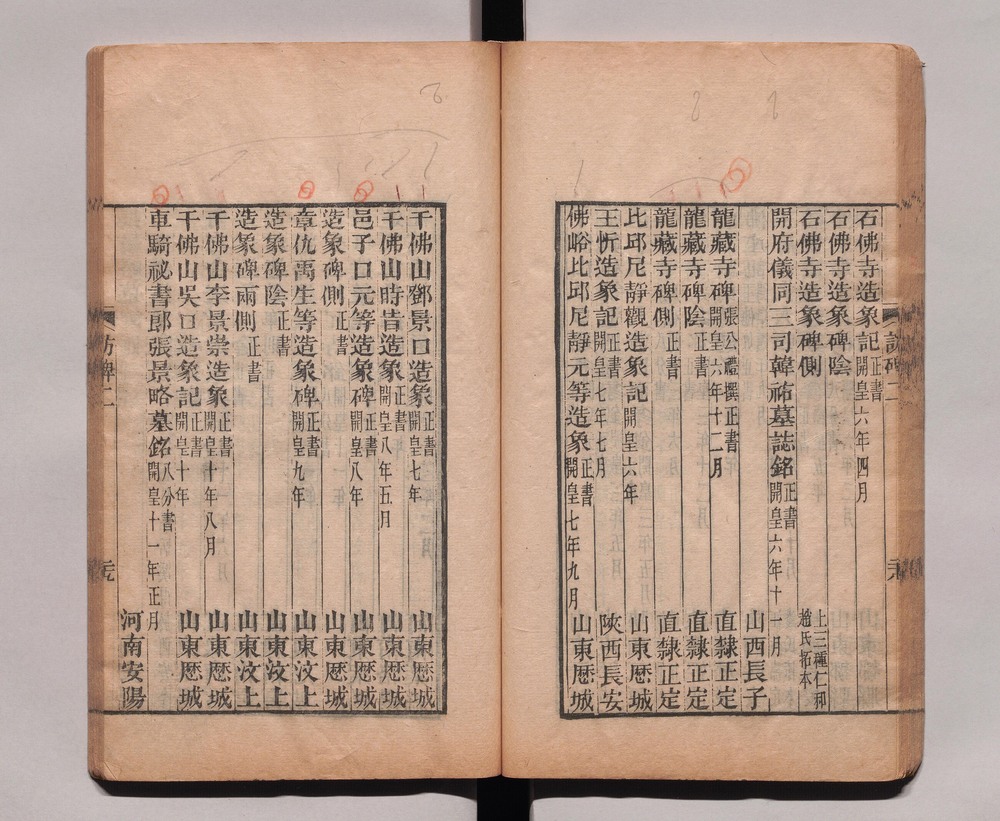 石佛寺造象記正書開皇六年四月
石佛寺造象碑陰
石佛寺造象碑側 上三種仁和趙氏拓本
開府儀同三司韓祐墓誌銘正書開皇六年十一月 山西長子
龍藏寺碑張公禮撰正書開皇六年十二月 直隸正定
龍藏寺碑陰正書 直隸正定
龍藏寺碑側正書 直隸正定
比邱尼靜觀造象記開皇六年 山東歷城
王忻造象記開皇七年七月 陝西長安
佛峪比邱尼靜元等造象正書開皇七年九月 山東歷城
千佛山鄧景口造象正書開皇七年 山東歷城
千佛山時昔造象正書開皇八年五月 山東歷城
邑子口元等造象碑正書開皇八年 山東歷城
造象碑側正書 山東歷城
章仇禹生等造象碑正書開皇九年 山東汶上
造象碑陰正書 山東汶上
造象碑兩側正書 山東汶上
千佛山李景崇造象正書開皇十年八月 山東歷城
千佛山吳口造象記正書開皇十年 山東歷城
車騎祕書郎張景略墓銘八分書開皇十一年正月 河南安陽
訪碑二